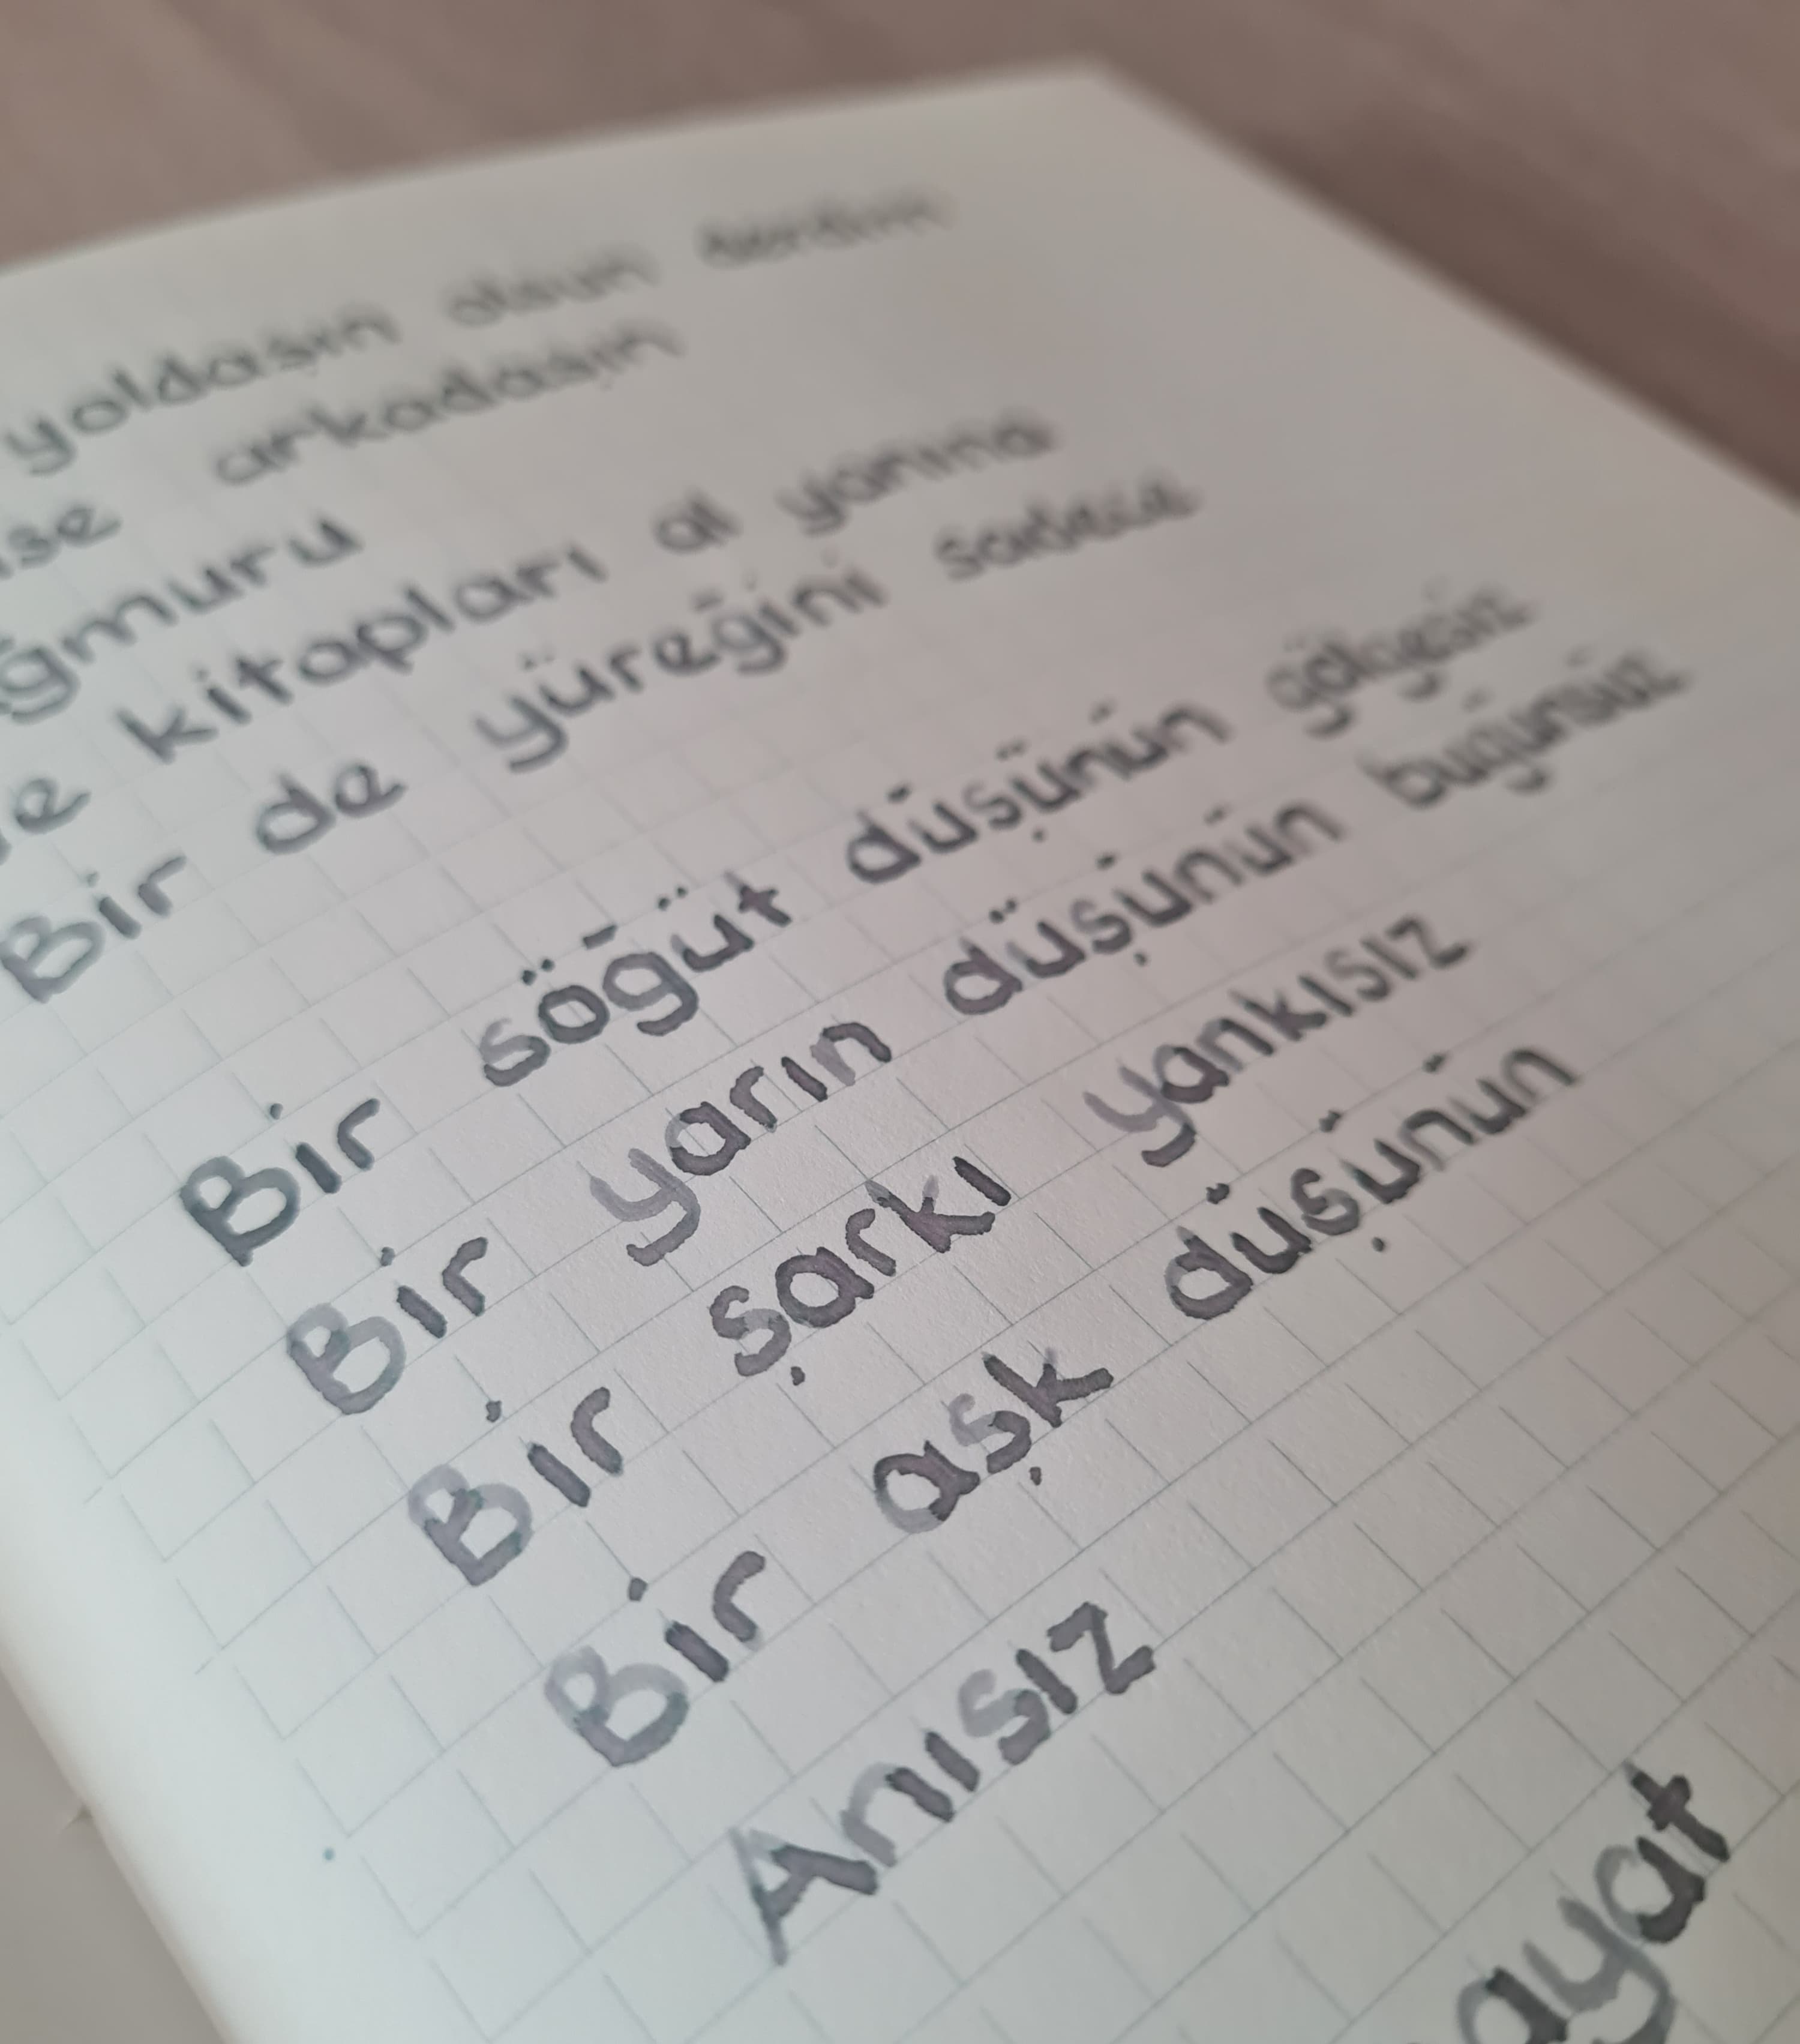 yoldaşın olsun derdim
ise arkadaşın
ğmuru
ve kitapları al yanına
Bir de yüreğini sadece
Bir söğüt düşünün gölgesiz
Bir yarın düşünün bugünsüz
Bir şarkı yankısız
Bir aşk düşünün
Anısız
ayat